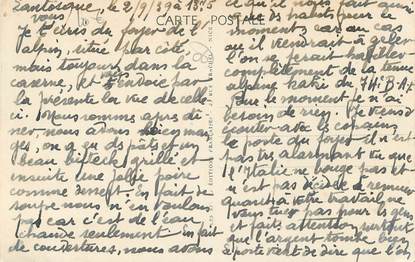 Lantosque, le 2/9/39 à 13h5
CARTE POSTALE
vous
Je écris du foyer de l'
alpin, situé par côté,
mais toujours dans la
caserne, et t'envoie par
la présente la vue de celle
ci. Nous sommes après dî
ner, nous avons bien man
gés, on a eu des pâtes et un
beau bifteck grillé et
ensuite une jolie poire
comme dessert. En fait de
soupe nous n'en voulons
pas car c'est de l'eau
chaude seulement. En fait
de couvertures, nous avons
ce qu'il nous fait que
des habits pour ce
moment, car au cas
où il viendrait à geler
l'on se ferait habiller
complètement de la tenue
alpine kaki du 74: B.A.F
Pour le moment je n'ai
besoin de rien. Je viens d'
écouter avec les copains
le poste du foyer il n'est
pas très alarmant vu que
l'Italie ne bouge pas et
n'est pas décidée à remuer
quant à votre travail ne
vous tuez pas pour les gens
et faites attention surtout
que l'argent tombe bien
à porte veut de dire que l'on